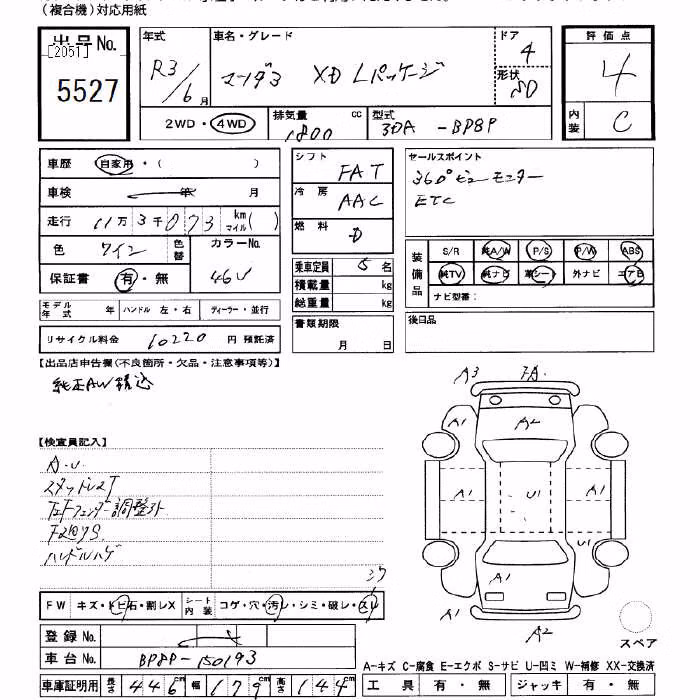 (複合機)対応用紙
出品No.
[2051]
5527
年式
R3/6月
車名・グレード
マーツダ3 XD Lパッケージ
ドア
4
形状
SD
評価点
4
内装
C
2WD・4WD
排気量 1800 cc
型式 3DA-BP8P
車歴 自家用・( )
車検 年 月
走行 11万3千073km マイル( )
色 ワイン 色替
カラーNo. 46V
保証書 有・無
モデル年式 年 ハンドル 左・右 ディーラー・並行
リサイクル料金 10220 円 預託済
シフト FAT
冷房 AAC
燃料 D
乗車定員 5名
積載量 kg
総重量 kg
書類期限
月 日
セールスポイント
360°ビューモニター
ETC
装備品
S/R 純A/W P/S P/W ABS
純TV 純ナビ 革シート 外ナビ エアB
ナビ型番:
後日品
【出品店申告欄(不良箇所・欠品・注意事項等)】
純正AW積込
【検査員記入】
A.U.
スタッドレスT
左Fフェンダー調整外
Fガラスキズ
ハンドルハゲ
A3 FA
A1 A2
A1 U1 A1
A1 A1 U1
A1 A2
スペア
FW キズ・トビ石・割レX
シート内装 コゲ・穴・汚レ・シミ・破レ・スレ
登録No.
車台No. BP8P-150193
車庫証明用 長さ 446cm 幅 179cm 高さ 144cm
A-キズ C-腐食 E-エクボ S-サビ U-凹ミ W-補修 XX-交換済
工具 有・無 ジャッキ 有・無